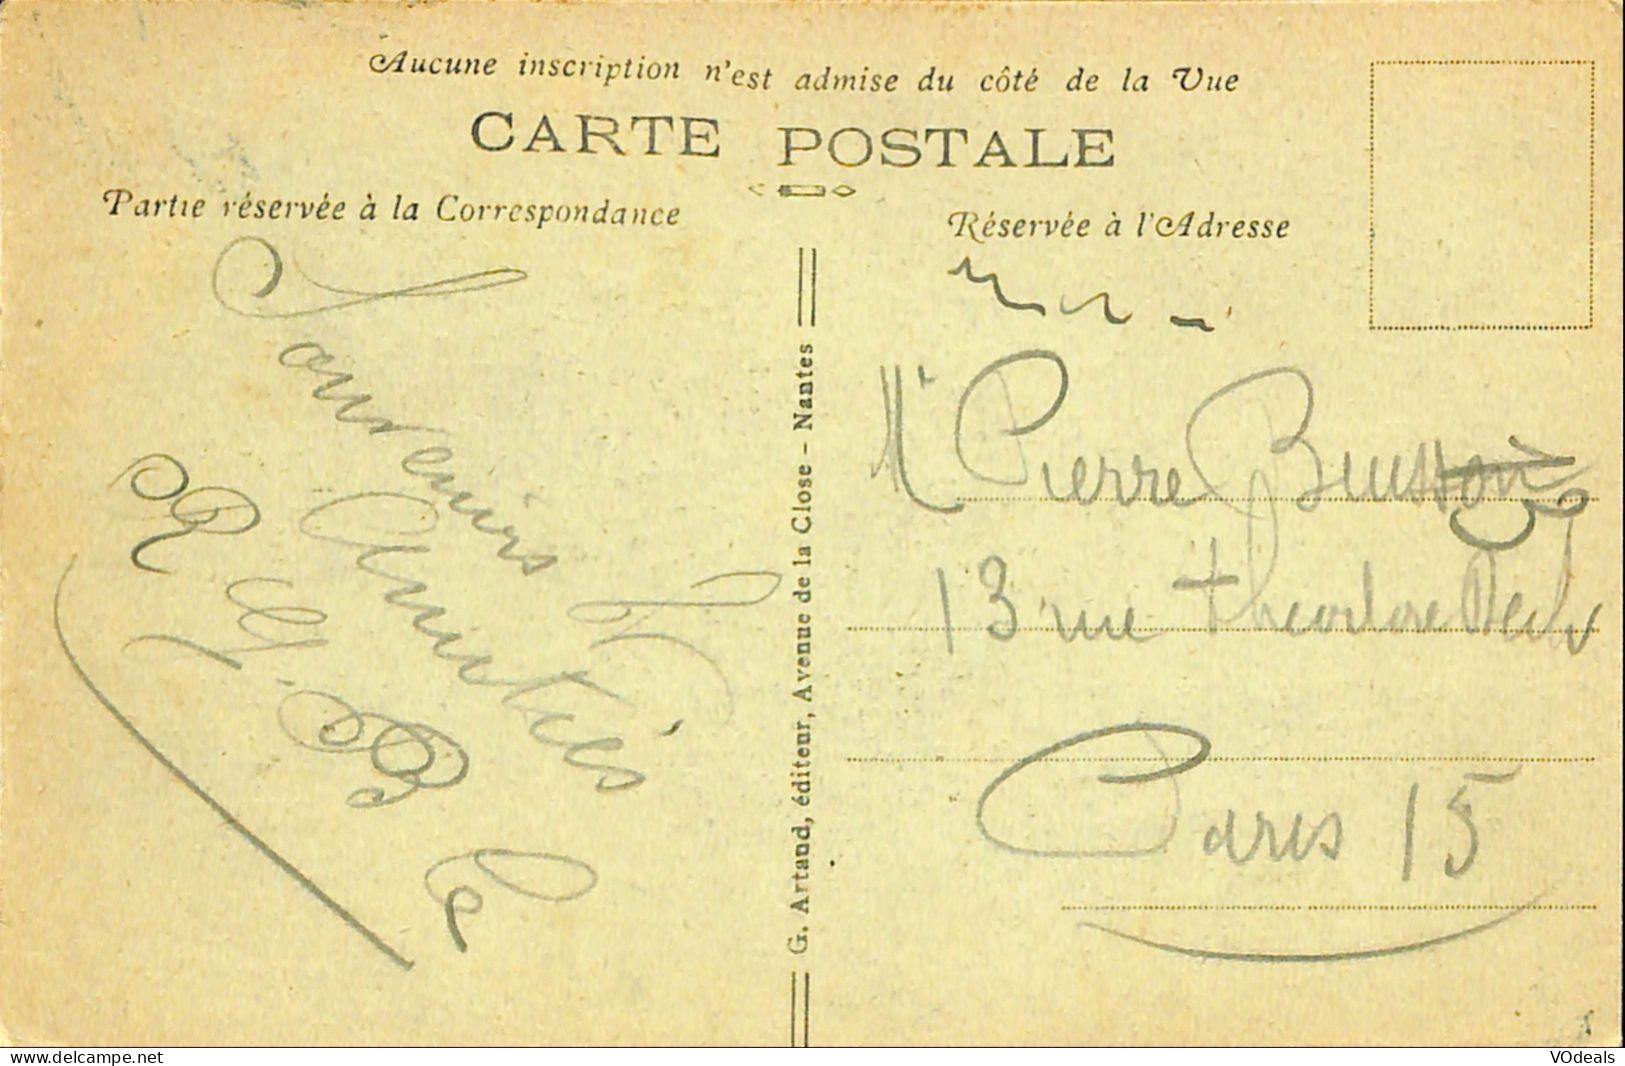 Aucune inscription n'est admise du côté de la Vue
CARTE POSTALE
Partie réservée à la Correspondance
Réservée à l'Adresse
Souvenirs &
Amitiés
R G. B
G. Artaud, éditeur, Avenue de la Close - Nantes
Mr Pierre Buisson
13 rue théodore Deck
Paris 15
www.delcampe.net
VOdeals